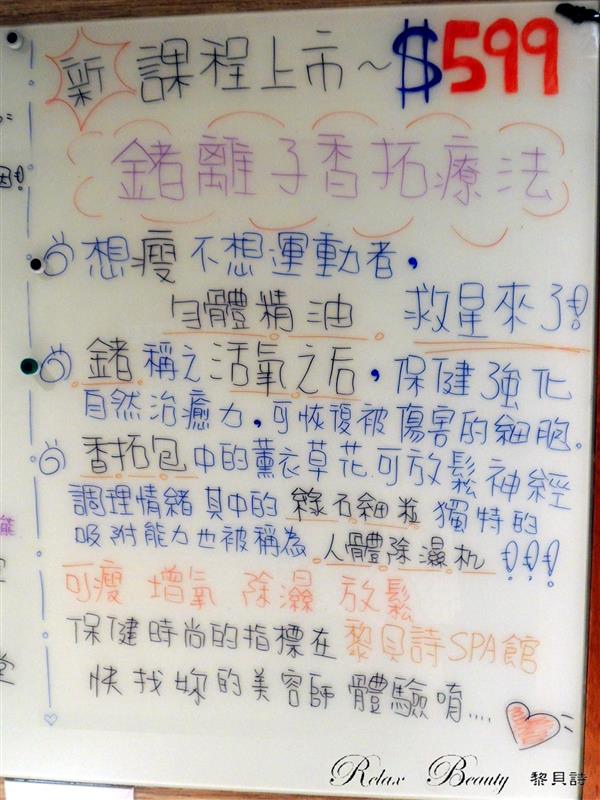 新 課程上市~$599
鍺離子香拓療法
想瘦不想運動者,
勻體精油 救星來了!
鍺稱之活氧之后,保健強化
自然治癒力,可恢復被傷害的細胞。
香拓包中的薰衣草花可放鬆神經
調理情緒 其中的綠石細粒 獨特的
吸附能力也被稱為人體除濕机!!!
可瘦 增氧 除濕 放鬆
保健時尚的指標在黎貝詩SPA館
快找妳的美容師體驗唷....
Relax Beauty 黎貝詩